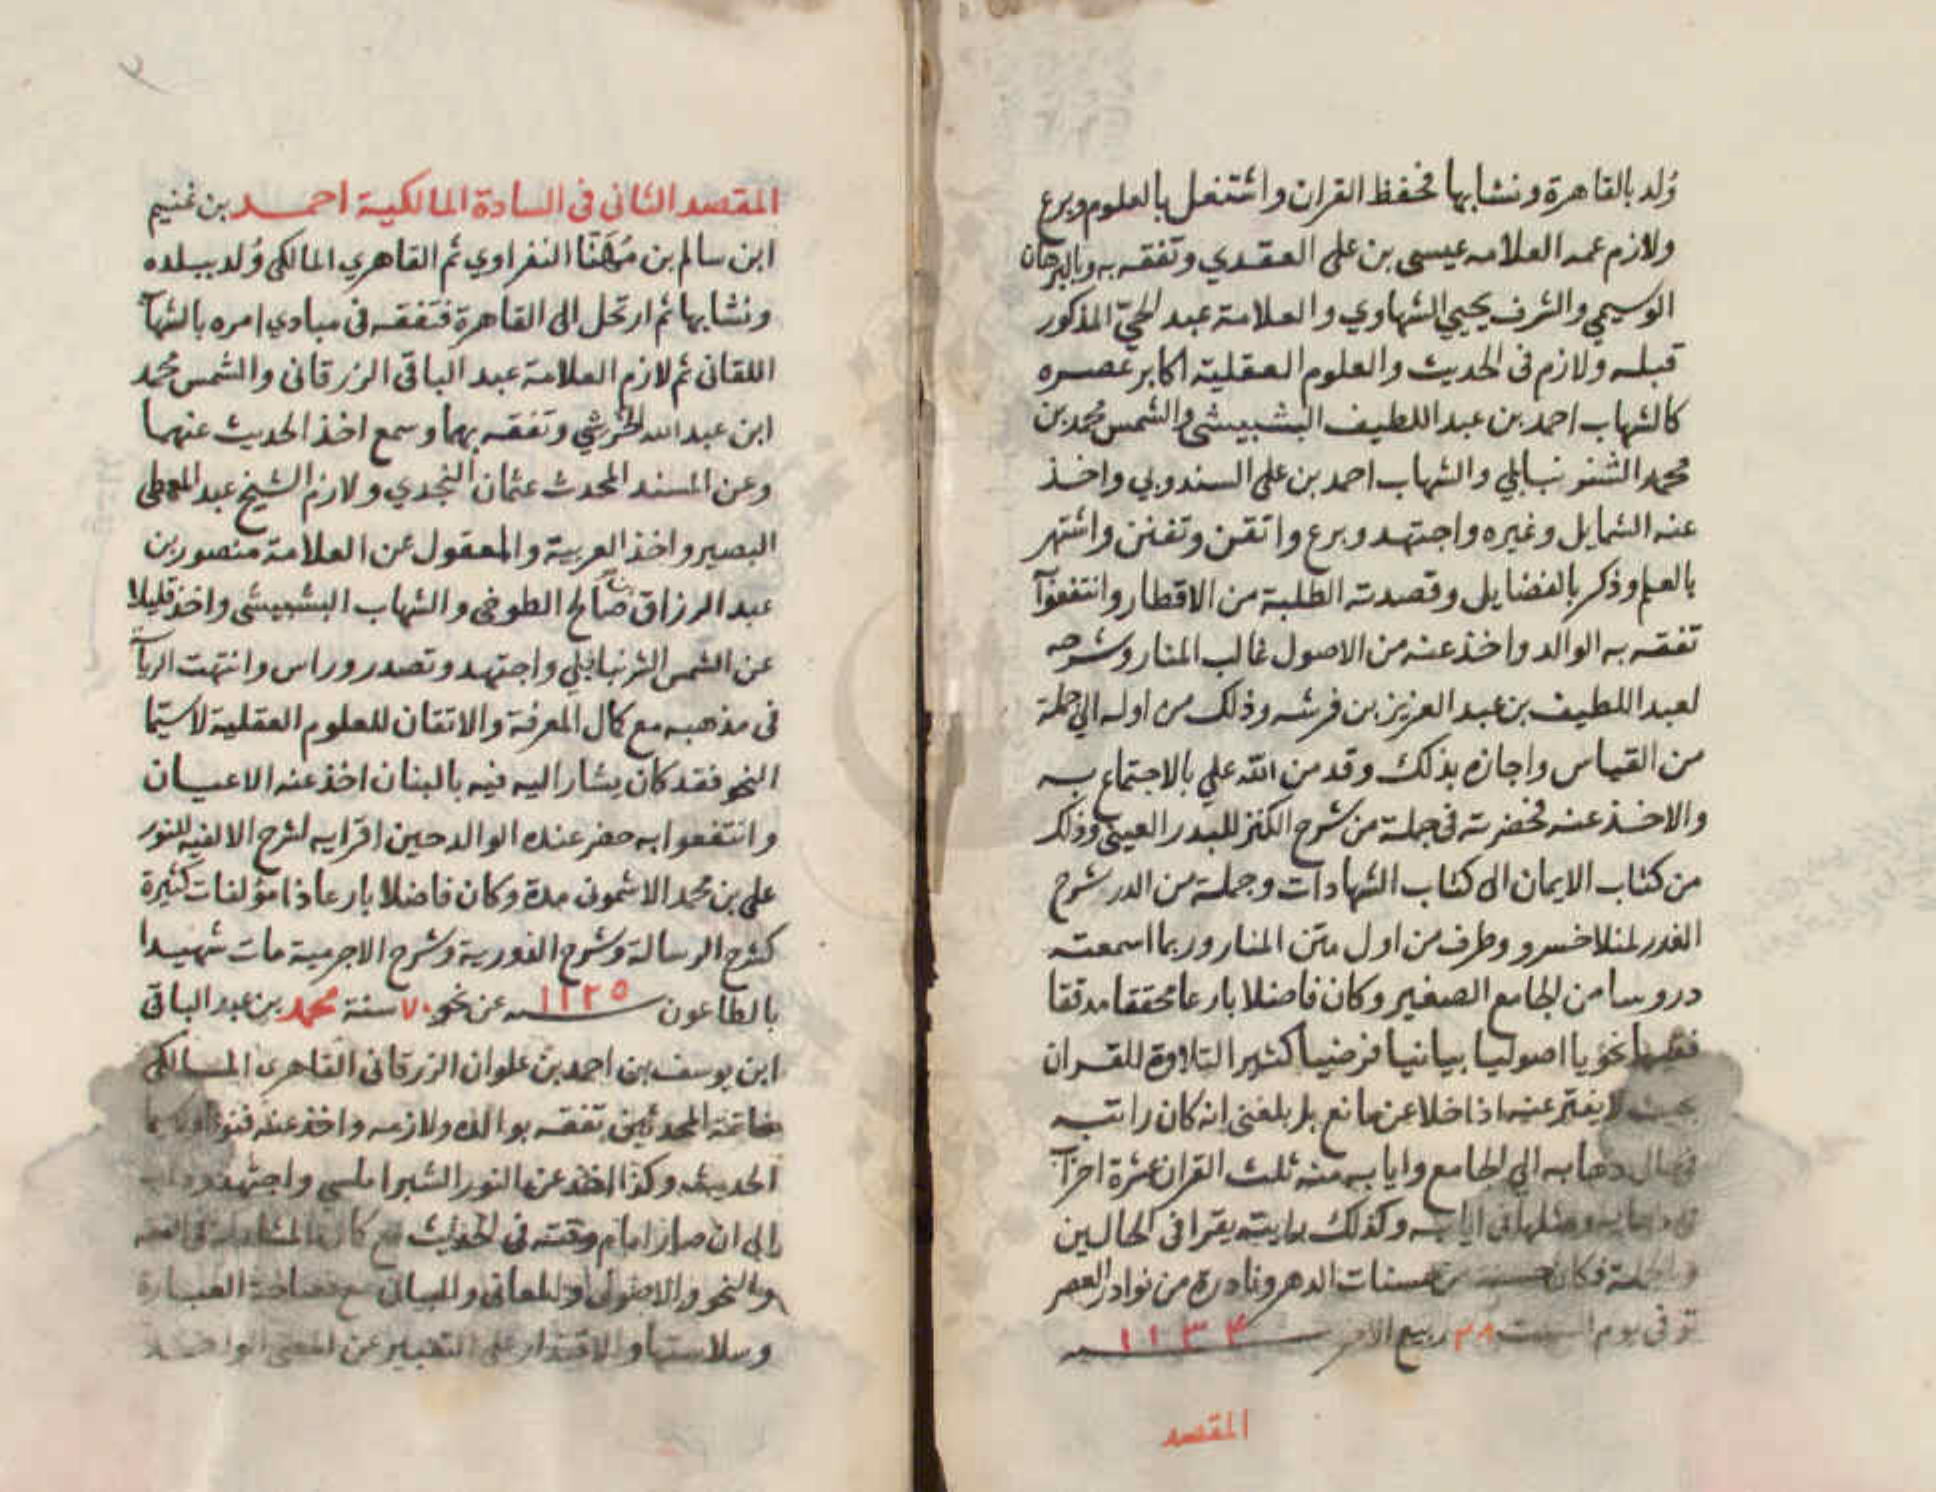 ولد بالقاهرة ونشا بها فحفظ القران واشتغل بالعلوم وبرع
ولازم عمه العلامه عيسى بن على العقدي وتفقه به وبالبرهان
الوسيمي والشرف يحيي الشهاوي والعلامة عبد الحيّ المذكور
قبله ولازم فى الحديث والعلوم العقلية اكابر عصره
كالشهاب احمد بن عبد اللطيف البشبيشى والشمس محمد بن
محمد الشرنبابلي والشهاب احمد بن على السندوبي واخذ
عنه الشمايل وغيره واجتهد وبرع واتقن وتفنن واشتهر
بالعلم وذكر بالفضايل وقصدته الطلبة من الاقطار وانتفعوا
تفقه به الوالد واخذ عنه من الاصول غالب المنار وشرحه
لعبد اللطيف بن عبد العزيز بن فرشه وذلك من اوله الي جملة
من القياس واجازه بذلك وقد من الله علي بالاجتماع به
والاخذ عنه فحضرته فى جملة من شرح الكنز للبدر العينى وذلك
من كتاب الايمان الى كتاب الشهادات وجملة من الدرر شرح
الغرر لمنلا خسرو وطرف من اول متن المنار وربما اسمعته
دروسا من الجامع الصغير وكان فاضلا بارعا محققا مدققا
فقيها نحويا اصوليا بيانيا فرضيا كثير التلاوة للقران
بحيث لا يفتر عنه اذا خلا عن مانع بل بلغنى انه كان راتبه
فى حال ذهابه الي الجامع وايابه منه ثلث القران عشرة احزآ
فى ذهابه ومثلها فى ايابه وكذلك رايته يقرا فى الحالين
وبالجملة فكان حسنة من حسنات الدهر ونادرة من نوادر العصر
توفى يوم السبت ٢٨ ربيع الاخر سنه ١١٣٤
المقصد
المقصد الثانى فى السادة المالكية احمد بن غنيم
ابن سالم بن مُهَنّا النفراوي ثم القاهري المالكى ولد ببلده
ونشا بها ثم ارتحل الى القاهرة فتفقه فى مبادي امره بالشهاب
اللقانى ثم لازم العلامة عبد الباقى الزرقانى والشمس محمد
ابن عبد الله الخرشي وتفقه بهما وسمع اخذ الحديث عنهما
وعن المسند المحدث عثمان النجدي ولازم الشيخ عبد المعطى
البصير واخذ العربية والمعقول عن العلامة منصور بن
عبد الرزاق بن صالح الطوخى والشهاب البشبيشى واخذ قليلا
عن الشمس الشرنبابلي واجتهد وتصدر وراس وانتهت الرياسة
فى مذهبه مع كمال المعرفة والاتقان للعلوم العقلية لا سيما
النحو فقد كان يشار اليه فيه بالبنان اخذ عنه الاعيان
وانتفعوا به حضر عنده الوالد حين اقرايه لشرح الالفيه للنور
على بن محمد الاشمونى مدة وكان فاضلا بارعا ذا مؤلفات كثيرة
كشرح الرسالة وشرح النورية وشرح الاجرمية مات شهيدا
بالطاعون سنه ١١٢٥ عن نحو ٧٠ سنة محمد بن عبد الباقى
ابن يوسف بن احمد بن علوان الزرقانى القاهرى المالكى
خاتمة المحدثين تفقه بوالده ولازمه واخذ عنه فنونا لا سيما
الحديث وكذا اخذ عن النور الشبراملسي واجتهد
الى ان صار امام وقته فى الحديث مع كمال المشاركة فى الفقه
والنحو والاصول والمعانى والبيان مع فصاحة العبارة
وسلاستها والاقتدار على التعبير عن المعنى الواحد